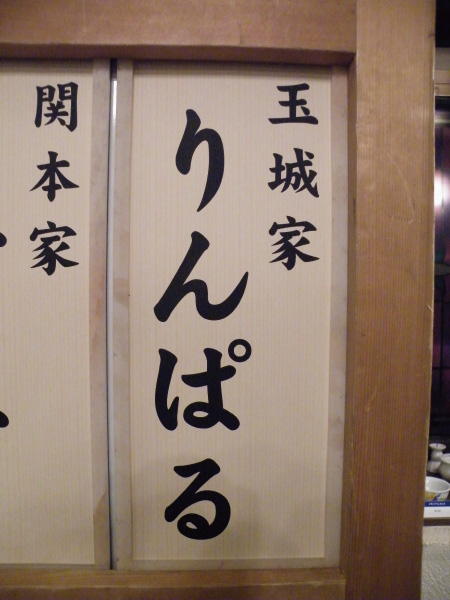 玉城家
りんぱる
関本家